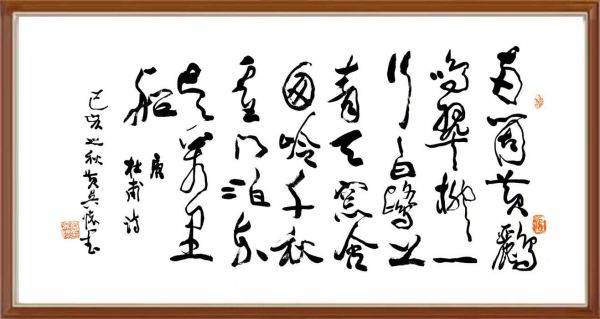 两箇黄鸝
鸣翠柳一
行白鹭上
青天窓含
西岭千秋
雪门泊东
吴萬里
船
唐
杜甫诗
己亥之秋黄书